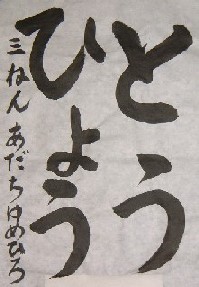 とう
ひょう
三ねん あだちゆめひろ